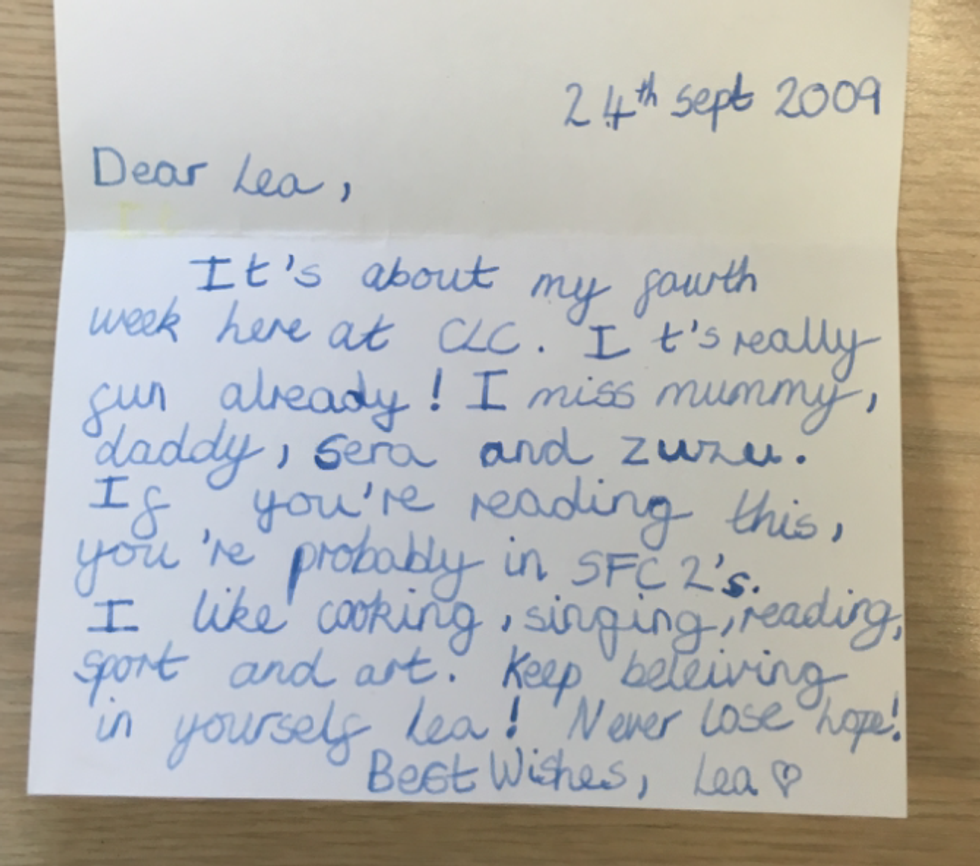 24th sept 2009
Dear Lea,
It's about my fourth
week here at CLC. It's really
fun already! I miss mummy,
daddy, sera and zuzu.
If you're reading this,
you're probably in SFC 2's.
I like cooking, singing, reading,
sport and art. Keep beleiving
in yourself Lea! Never lose hope!
Best Wishes, Lea ♡